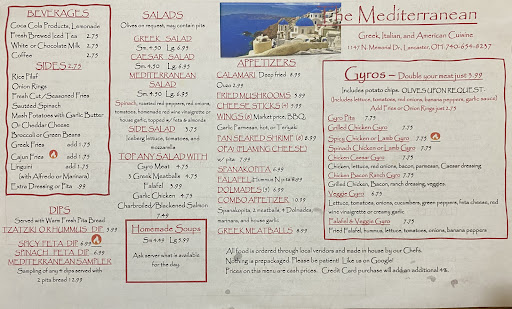 BEVERAGES
Coca Cola Products, Lemonade
Fresh Brewed Iced Tea 2.75
White or Chocolate Milk 2.75
Coffee 2.75
SIDES 3.75
Rice Pilaf
Onion Rings
Fresh Cut/Seasoned Fries
Sautéed Spinach
Mash Potatoes with Garlic Butter
Or Cheddar Cheese
Broccoli or Green Beans
Greek Fries add 1.75
Cajun Fries add 1.75
Linguini
(with Alfredo or Marinara)
Extra Dressing or Pita .99
DIPS
Served with Warm Fresh Pita Bread
TZATZIKI OR HUMMUS DIP
SPICY FETA DIP 6.99
SPINACH FETA DIP
MEDITERRANEAN SAMPLER
Sampling of any 4 dips served with
2 pita bread 12.99
SALADS
Olives on request, may contain pits
GREEK SALAD
Sm 4.50 Lg 6.95
CAESAR SALAD
Sm 4.50 Lg 6.95
MEDITERRANEAN
SALAD
Spinach, roasted red peppers, red onions,
tomatoes, homemade red wine vinaigrette or
house garlic, topped w/feta & almonds
SIDE SALAD 3.75
Iceberg lettuce, tomatoes, and
mozzarella
TOP ANY SALAD WITH
Gyro Meat 4.75
3 Greek Meatballs 4.75
Falafel 5.99
Garlic Chicken 4.75
Charbroiled/Blackened Salmon
7.99
Homemade Soups
Sm 4.99 Lg 5.99
Ask server what is available
for the day.
APPETIZERS
CALAMARI Deep fried 8.99
Ouzo 2.99
FRIED MUSHROOMS 5.99
CHEESE STICKS 5.99
WINGS Market price. BBQ,
Garlic Parmesan, hot, or Teriyaki
PAN SEARED SHRIMP 8.99
OPA! (FLAMING CHEESE)
w/ pita 7.99
SPANAKOPITA 6.99
FALAFEL Hummus N pita 8.99
DOLMADES
COMBO APPETIZER
Spanakopita, 2 meatballs, 2 Dolmades,
marinara, and house garlic.
GREEK MEATBALLS 8.99
The Mediterranean
Greek, Italian, and American Cuisine
1147 N. Memorial Dr., Lancaster, OH 740-654-8237
Gyros – Double your meat just 3.99
Includes potato chips. OLIVES UPON REQUEST
(Includes lettuce, tomatoes, red onions, banana peppers, garlic sauce)
Add Fries or Onion Rings just 2.75
Gyro Pita 7.75
Grilled Chicken Gyro 7.75
Spicy Chicken or Lamb Gyro 7.75
Spinach Chicken or Lamb Gyro 7.75
Chicken Caesar Gyro 7.75
Chicken, lettuce, red onions, bacon, parmesan, Caesar dressing
Chicken Bacon Ranch Gyro 7.75
Grilled Chicken, Bacon, ranch dressing, veggies.
Veggie Gyro 6.75
Lettuce, tomatoes, onions, cucumbers, green peppers, feta cheese, red
wine vinaigrette or creamy garlic
Falafel & Veggie Gyro 7.75
Fried Falafel, hummus, lettuce, tomatoes, onions, banana peppers
All food is ordered through local vendors and made in house by our Chefs.
Nothing is prepackaged. Please be patient! Like us on Google!
Prices on this menu are cash prices. Credit Card purchase will add an additional 4%.